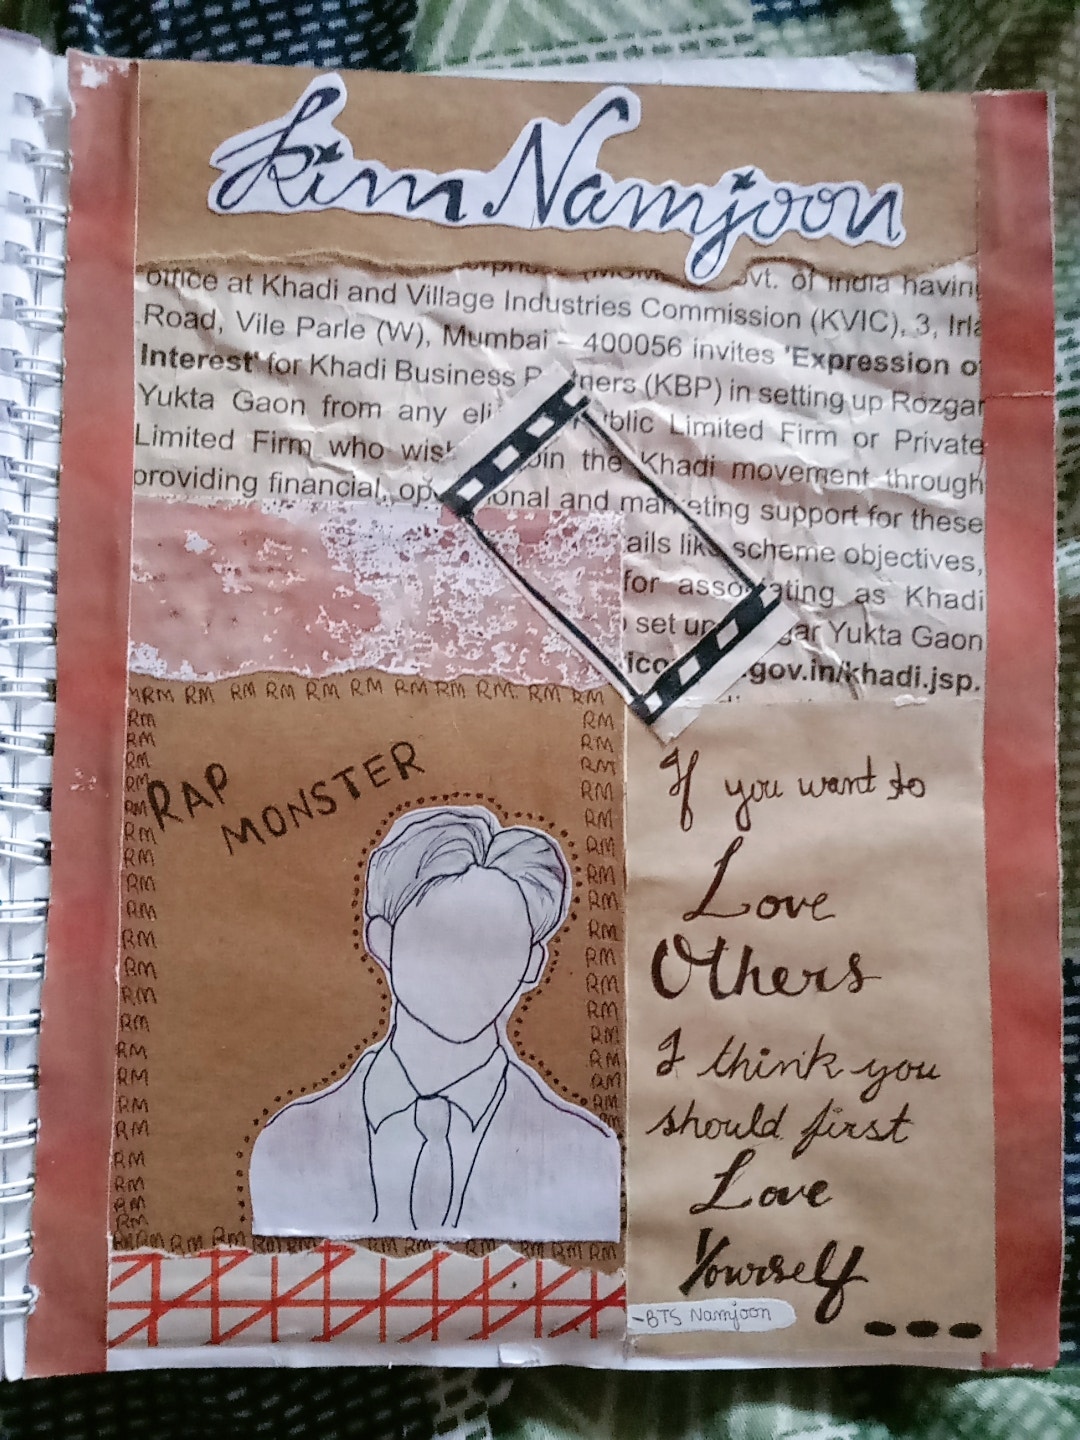 Kim Namjoon
vt. of India having
office at Khadi and Village Industries Commission (KVIC), 3, Irla
Road, Vile Parle (W), Mumbai – 400056 invites 'Expression of
Interest' for Khadi Business P ners (KBP) in setting up Rozgar
Yukta Gaon from any eli ublic Limited Firm or Private
Limited Firm who wish oin the Khadi movement through
providing financial, op ional and marketing support for these
ails like scheme objectives,
for associating as Khadi
set up gar Yukta Gaon
ico .gov.in/khadi.jsp.
RM RM RM RM RM RM RM RM RM RM RM
RAP
MONSTER
If you want to
Love
Others
I think you
should first
Love
Yourself
-BTS Namjoon
...